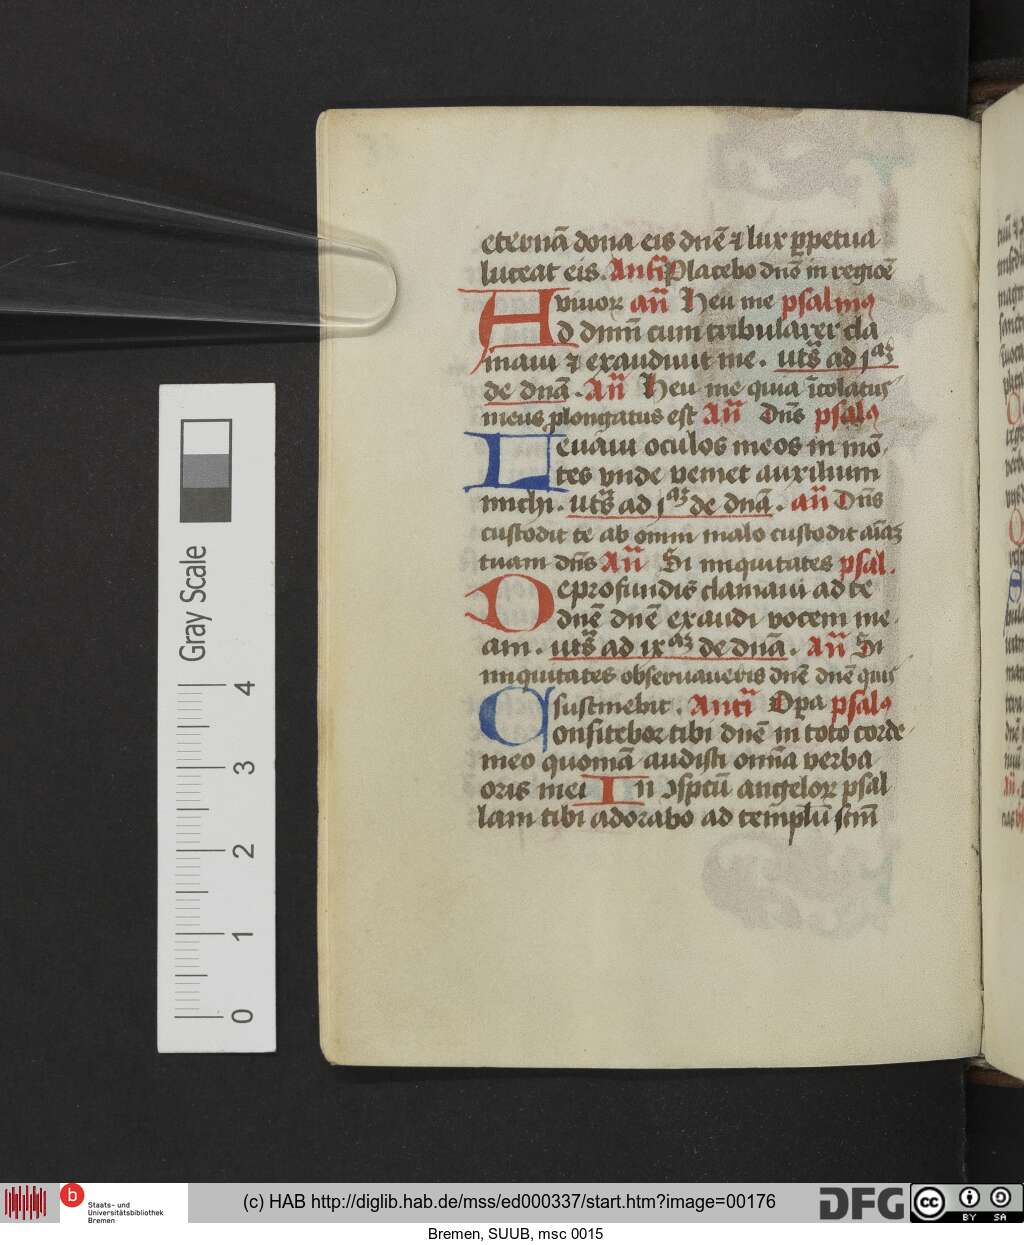 eternā dona eis dnē ⁊ lux ꝑpetua
luceat eis. Antīͣ Placebo dnō in regiōē
viuoꝝ añ Heu me psalmꝰ
AD dnm̄ cum tribularer cla
maui ⁊ exaudiuit me. utš ad jᵃꝫ
de dnā. Añ Heu me quia īcolatus
meus ꝓlongatus est Añ Dns̄ psalꝰ
LEuaui oculos meos in mō
tes vnde veniet auxilium
michi. utš ad jᵃꝫ de dnā. añ Dns̄
custodit te ab omni malo custodit aīaꝫ
tuam dns̄ Añ Si iniquitates psal.
DE profundis clamaui ad te
dnē dnē exaudi vocem me
am. utš ad ixᵃꝫ de dnā. Añ Si
iniquitates obseruaueris dnē dnē quis
sustinebit. Antī Oꝑa psalꝰ
Confitebor tibi dnē in toto corde
meo quoniā audisti omīa verba
oris mei In ꝯsptū angeloꝝ psal
lam tibi adorabo ad templū scm̄
Gray Scale
4
3
2
1
0
b
Staats- und
Universitätsbibliothek
Bremen
(c) HAB http://diglib.hab.de/mss/ed000337/start.htm?image=00176
DFG
cc
BY SA
Bremen, SUUB, msc 0015